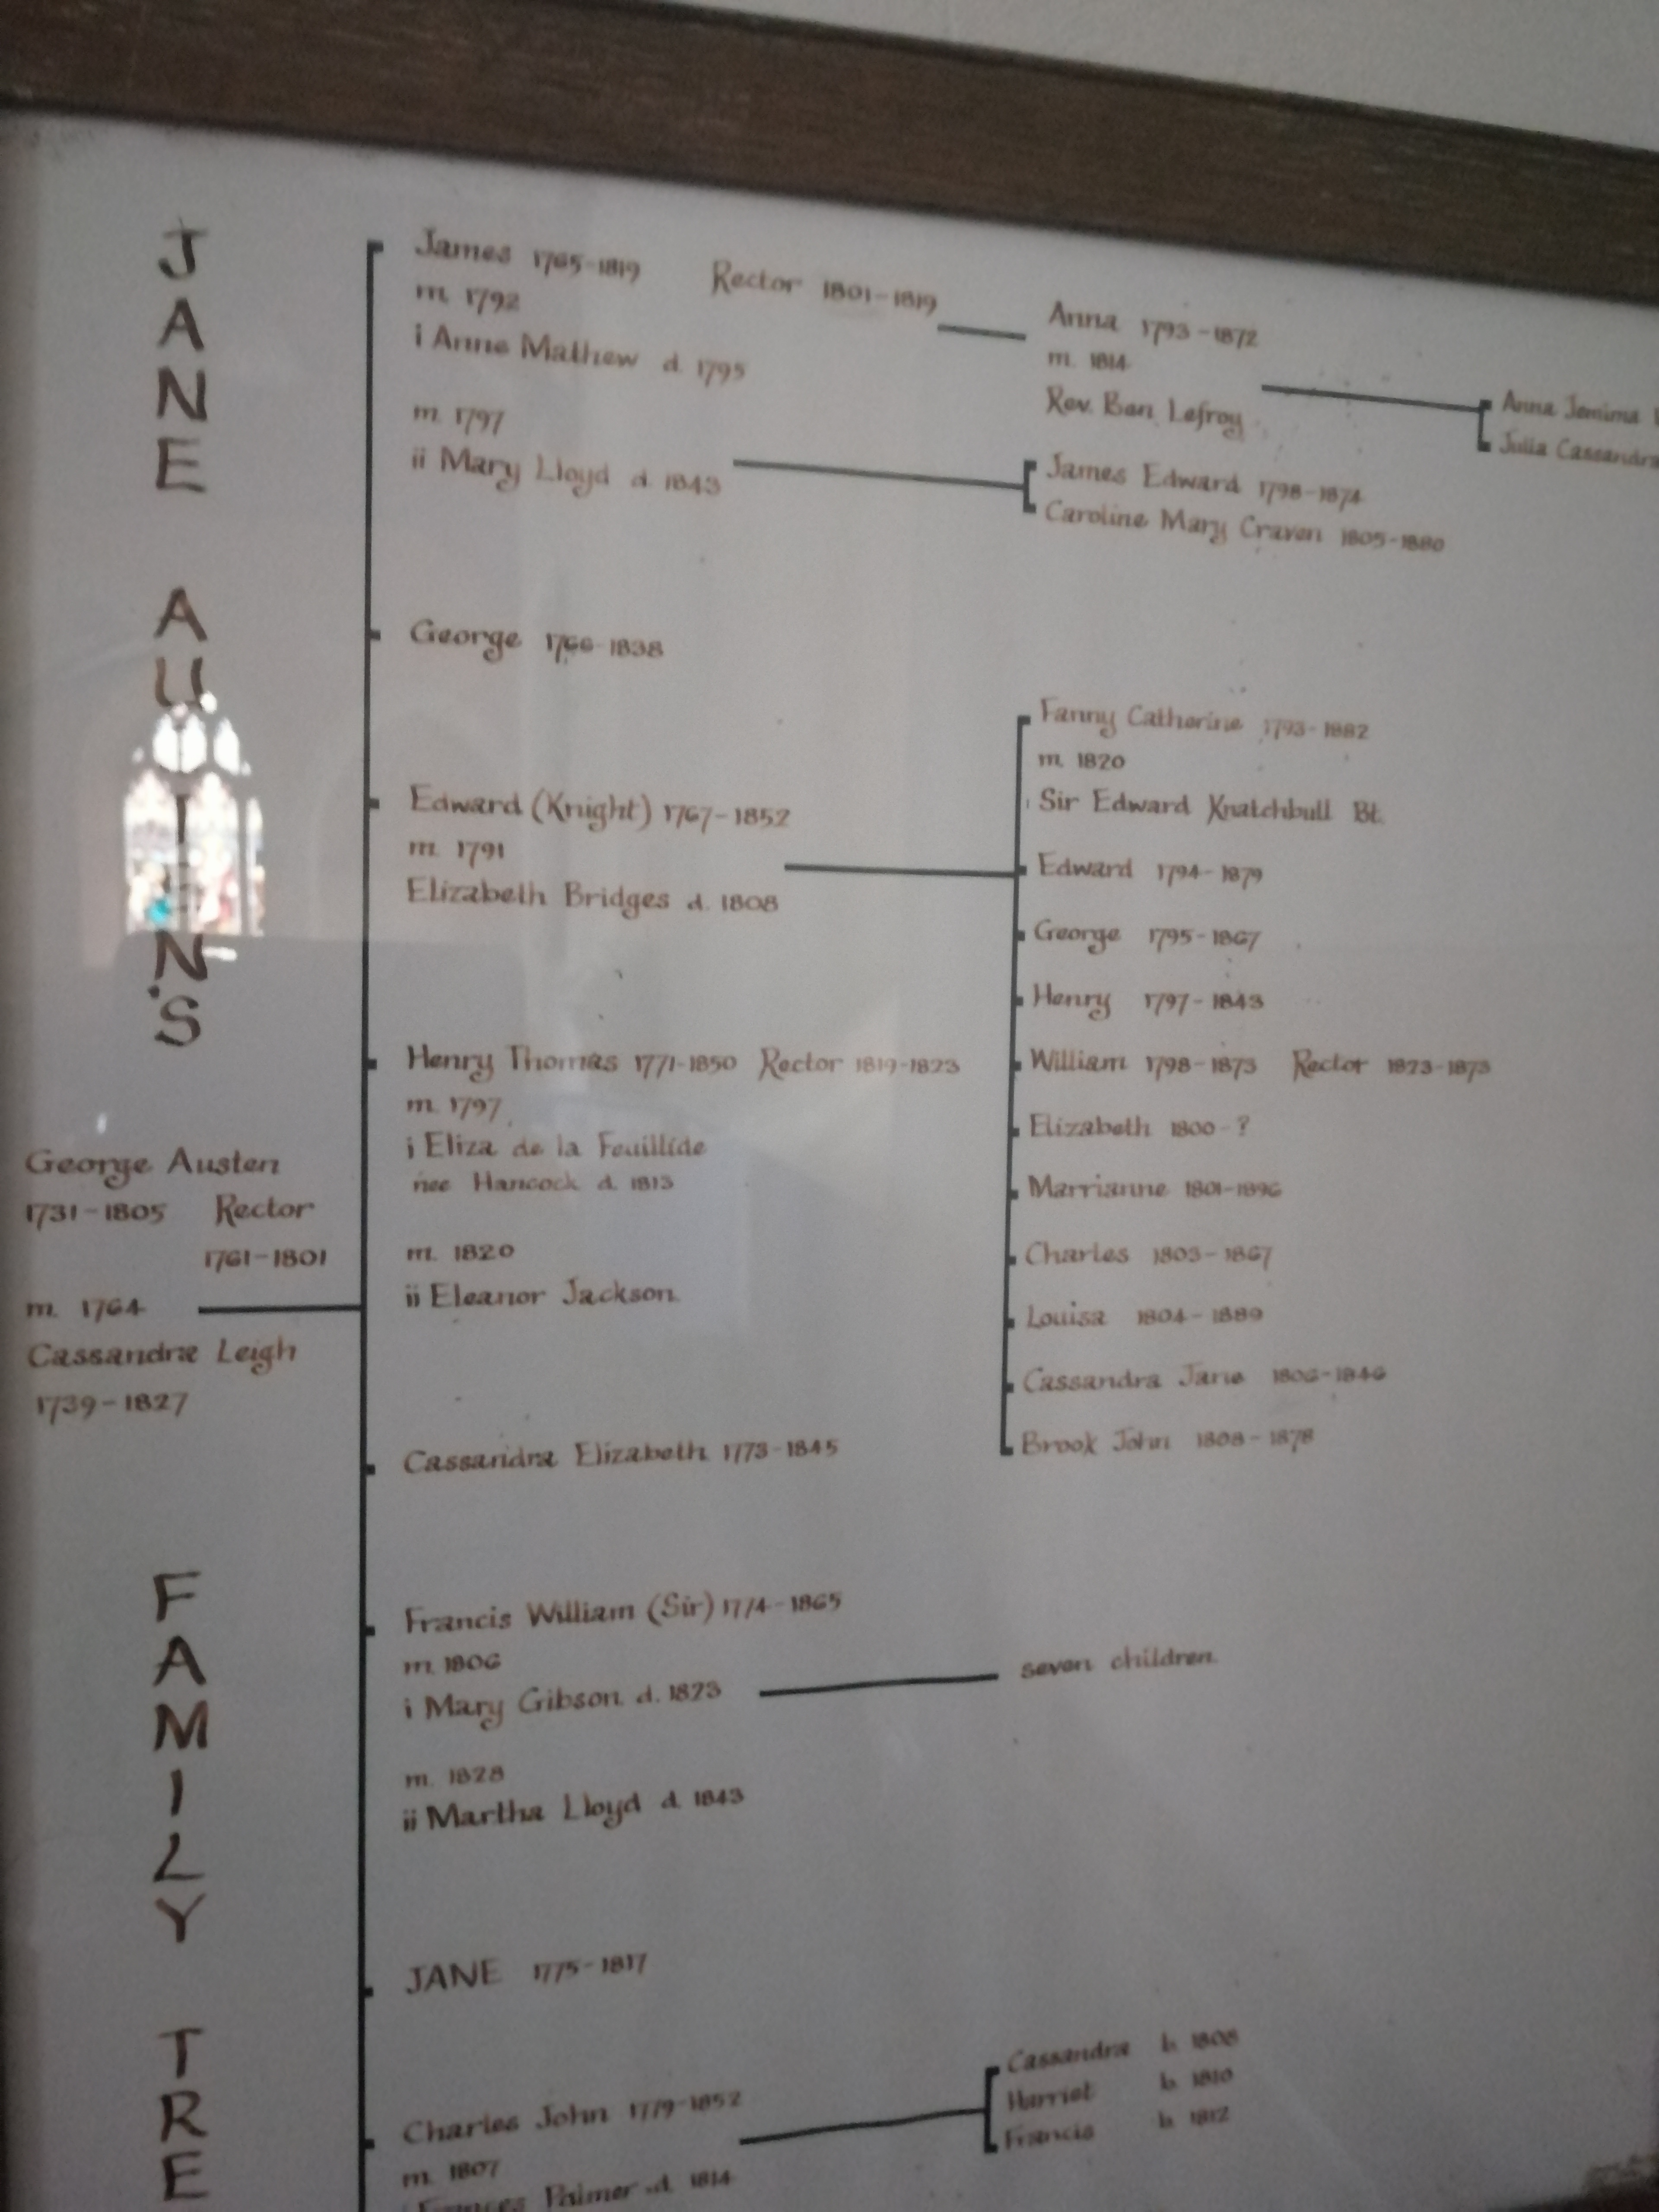 JANE AUSTEN'S FAMILY TREE
George Austen
1731-1805 Rector
1761-1801
m. 1764
Cassandra Leigh
1739-1827
James 1765-1819 Rector 1801-1819
m. 1792
i Anne Mathew d. 1795
m. 1797
ii Mary Lloyd d. 1843
Anna 1793-1872
m. 1814
Rev. Ben Lefroy
Anna Jemima
Julia Cassandra
James Edward 1798-1874
Caroline Mary Craven 1805-1880
George 1766-1838
Edward (Knight) 1767-1852
m. 1791
Elizabeth Bridges d. 1808
Fanny Catherine 1793-1882
m. 1820
Sir Edward Knatchbull Bt.
Edward 1794-1879
George 1795-1867
Henry 1797-1843
William 1798-1873 Rector 1823-1873
Elizabeth 1800-?
Marrianne 1801-1896
Charles 1803-1867
Louisa 1804-1889
Cassandra Jane 1806-1846
Brook John 1808-1878
Henry Thomas 1771-1850 Rector 1819-1823
m. 1797
i Eliza de la Feuillide
nee Hancock d. 1813
m. 1820
ii Eleanor Jackson.
Cassandra Elizabeth 1773-1845
Francis William (Sir) 1774-1865
m. 1806
i Mary Gibson d. 1823
seven children.
m. 1828
ii Martha Lloyd d. 1843
JANE 1775-1817
Charles John 1779-1852
m. 1807
Frances Palmer d. 1814
Cassandra b. 1808
Harriet b. 1810
Francis b. 1812